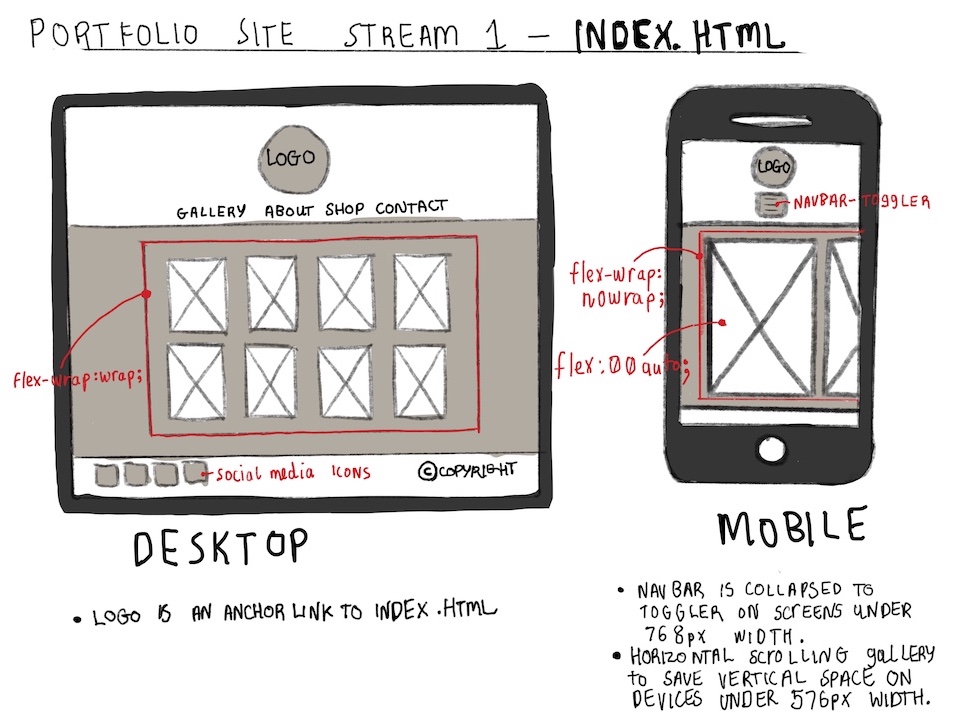 PORTFOLIO SITE STREAM 1 - INDEX.HTML
LOGO
GALLERY ABOUT SHOP CONTACT
flex-wrap:wrap;
SOCIAL MEDIA ICONS
©COPYRIGHT
DESKTOP
• LOGO IS AN ANCHOR LINK TO INDEX.HTML
LOGO
NAVBAR-TOGGLER
flex-wrap:
nowrap;
flex:00auto;
MOBILE
• NAVBAR IS COLLAPSED TO
TOGGLER ON SCREENS UNDER
768px WIDTH.
• HORIZONTAL SCROLLING gALLERY
TO SAVE VERTICAL SPACE ON
DEVICES UNDER 576PX WIDTH.